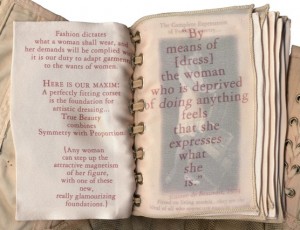 Fashion dictates
what a woman shall wear, and
her demands will be complied with
it is our duty to adapt garments
to the wants of women.
HERE IS OUR MAXIM:
A perfectly fitting corset
is the foundation for
artistic dressing...
True Beauty
combines
Symmetry with Proportion.
{Any woman
can step up the
attractive magnetism
of her figure,
with one of these
new,
really glamourizing
foundations.}
The Complete
By
means of
[dress]
the woman
who is deprived
of doing anything
feels
that she
expresses
what
she
is.